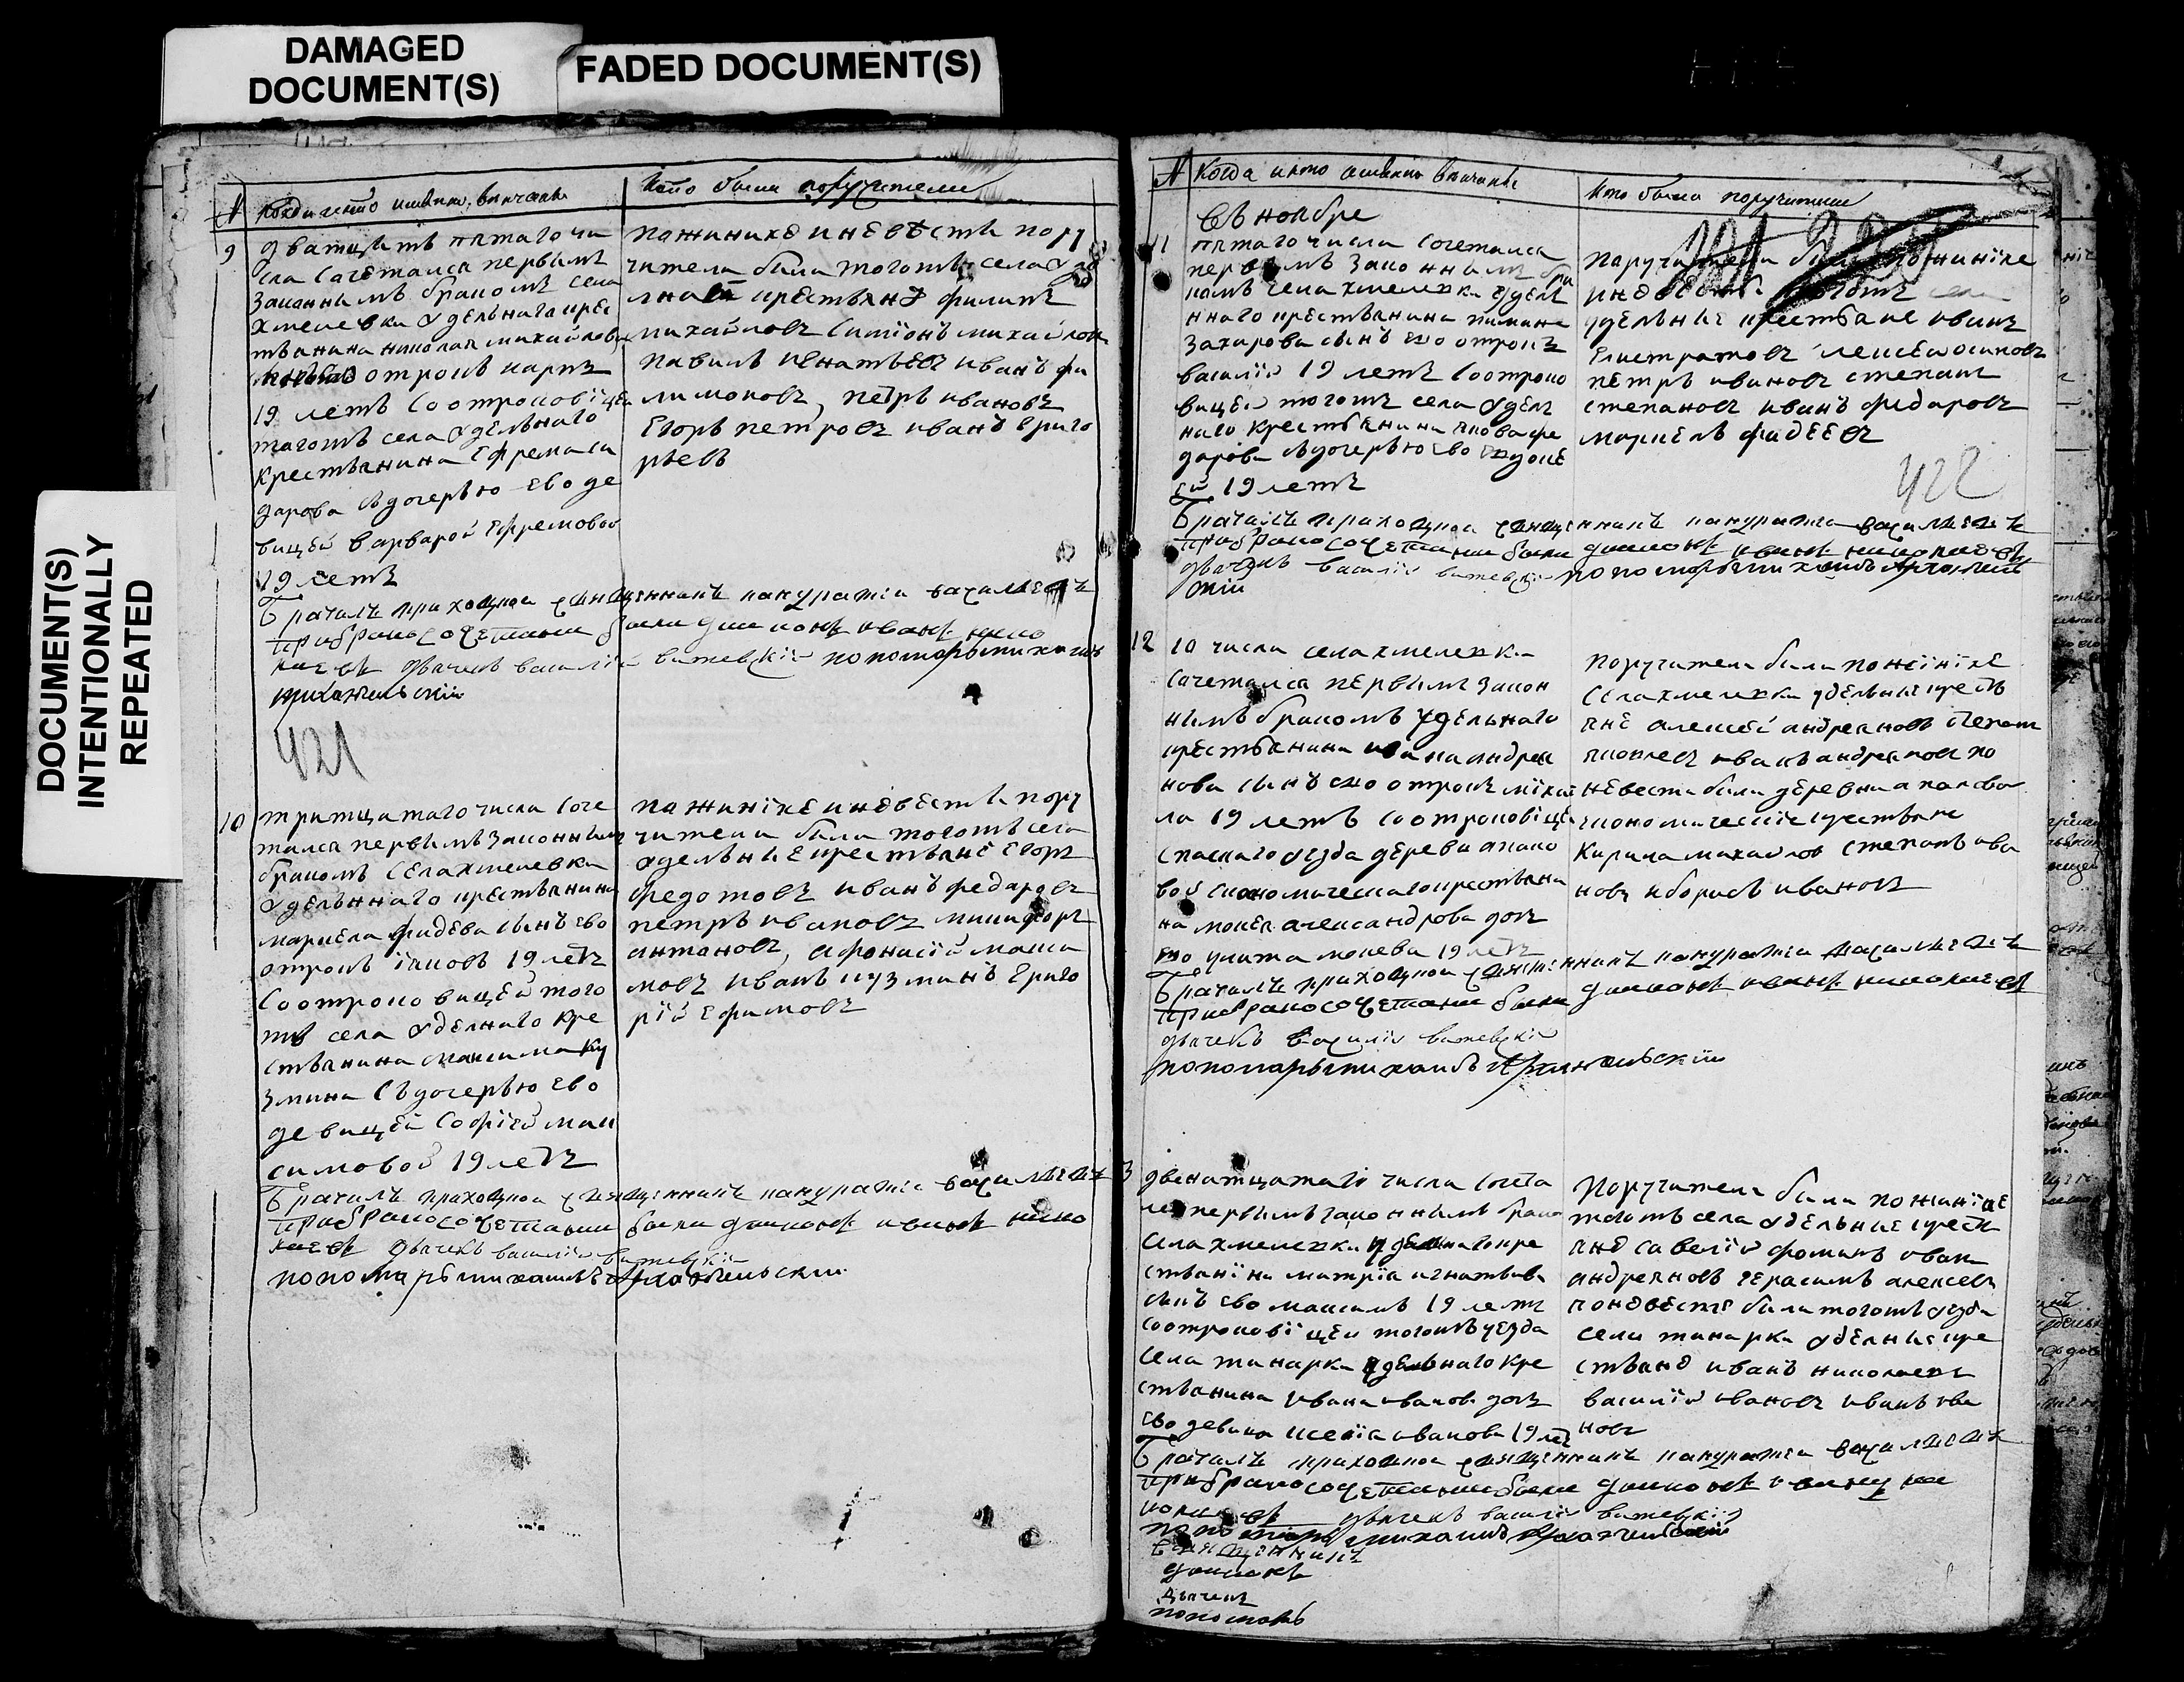 DAMAGED
DOCUMENT(S)
FADED DOCUMENT(S)
DOCUMENT(S)
INTENTIONALLY
REPEATED
N
кто были поручители
9
дватцать пятаго чи
сла сочетался первымъ
законнымъ бракомъ села
хмелевки удельнаго крес
тьянина николая михайлова
отрокъ карпъ
19 летъ со отроковицей
тагожъ села удельнаго
крестьянина Ефрема си
дарова съ дочерью ево де
вицей варварой Ефремовой
19 летъ
пажинихе и невесте пору
чители были тогожъ села уде
крестьяне филипъ
михайловъ симионъ михайлов
павилъ игнатьевъ иванъ фи
лимоновъ, петръ ивановъ
Егоръ петровъ иванъ григо
рьевъ
Брачилъ приходской священникъ панкратiй васильевъ
при бракосочетании были дьяконъ иванъ нико
лаевъ дьячекъ василiй понамарь михаилъ
архангельскiй
421
10
тритцатаго числа соче
тался первымъ законнымъ
бракомъ села хмелевки
удельннаго крестьянина
маркела фадеева сынъ ево
отрокъ iаковъ 19 летъ
со отроковицей того
жъ села уделнаго кре
стьянина максима ку
змина съ дочерью ево
девицей софiей мак
симовой 19 летъ
па жинiхе и невесте пору
чители были тогожъ села
уделные крестьяне Егоръ
федотовъ иванъ федаровъ
петръ ивановъ никифоръ
антоновъ, афонасiй макси
мовъ иванъ кузминъ григо
рiй Ефимовъ
Брачилъ приходской священникъ панкратiй васильевъ
при бракосочетании были дьяконъ иванъ нико
лаевъ дьячекъ василiй
понамарь михаилъ архангельскiй
N Когда и кто именно венчаны
кто были поручители
Въ ноябре
11
пятаго числа сочетался
первымъ законнымъ бра
комъ села хмелевки удел
ннаго крестьянина пимина
захарова сынъ ево отрокъ
василiй 19 летъ со отроко
вицей тогожъ села удел
наго крестьянина якова фе
дарова съ дочерью ево
19 летъ
поручители были по жинiхе
и невесте тогожъ села
удельные крестьяне иванъ
Елистратовъ алексей осиповъ
петръ ивановъ степанъ
степановъ иванъ федаровъ
маркелъ фадеевъ
422
Брачилъ приходской священникъ панкратiй васильевъ
при бракосочетании были дьяконъ иванъ николаевъ
дьячекъ василiй понамарь михаилъ
12
10 числа села хмелевки
сочетался первымъ закон
нымъ бракомъ удельнаго
крестьянина ивана андрея
нова сынъ ево отрокъ михаи
ла 19 летъ со отроковiцей
спаскаго уезда деревни апако
вой економическаго крестьяни
на мокея александрова дочь
ево улита мокева 19 летъ
поручители были по жинiхе
села хмелевки удельные крестья
яне алексей андреяновъ степанъ
яковлевъ иванъ андреяновъ по
невесте были деревни апаковой
економическiе крестьяне
Кирила михайлов степанъ ива
новъ и борисъ ивановъ
Брачилъ приходской священникъ панкратiй васильевъ
при бракосочетании были дьяконъ иванъ николаевъ
дьячекъ василiй
понамарь михаилъ архангельскiй
3
двенатцатаго числа сочета
лся первымъ законнымъ брако
села хмелевки удельнаго кре
стьянiна митрiя игнатьева
сынъ ево максимъ 19 летъ
со отроковiцей тогожъ уезда
села тинарки удельнаго кре
стьянина ивана иванова дочь
ево девица ксенiя иванова 19 летъ
Поручители были по жинiхе
тогожъ села удельные кресть
яне савелiй фоминъ иванъ
андреяновъ герасимъ алексевъ
по невесте были тогожъ уезда
села тинарки уделные кре
стьяне иванъ николаевъ
василiй ивановъ иванъ ива
новъ
Брачилъ приходской священникъ панкратiй васильевъ
при бракосочетании были дьяконъ иванъ ни
колаевъ дьячекъ василiй
понамарь михаилъ архангельскiй
священникъ
дьяконъ
дьячекъ
понамарь